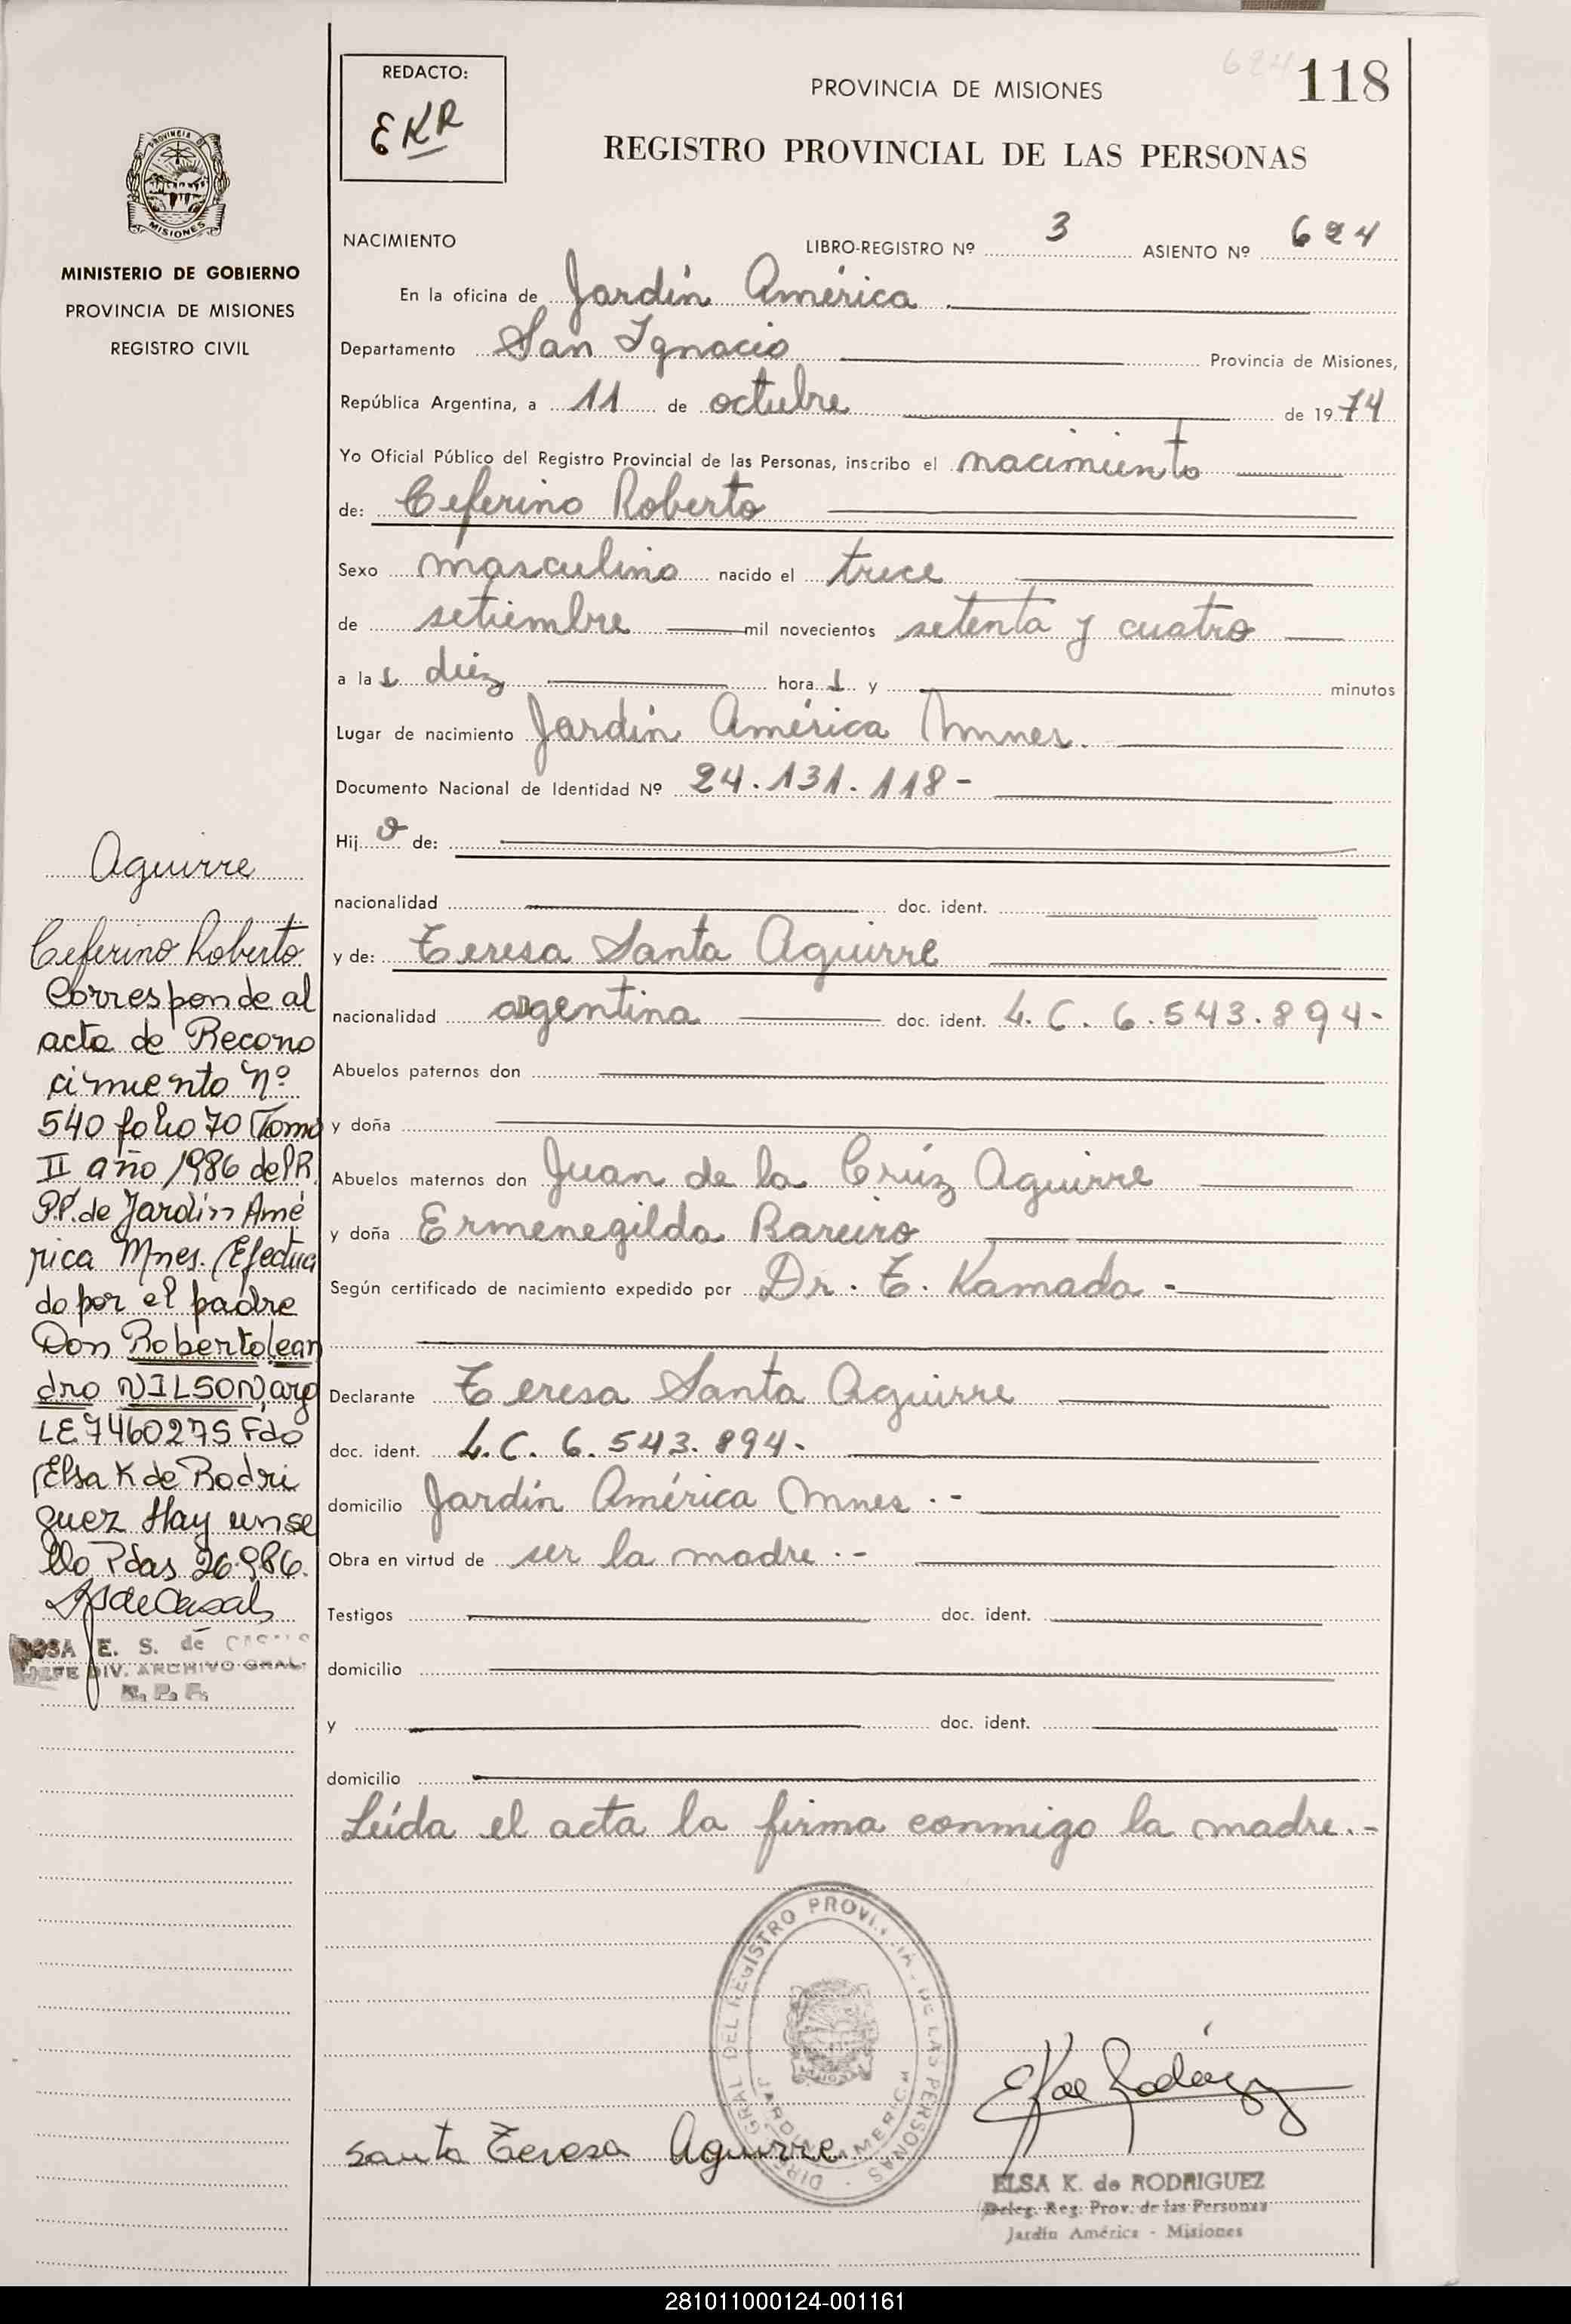 REDACTO:
EKR
624
118
PROVINCIA DE MISIONES
REGISTRO PROVINCIAL DE LAS PERSONAS
PROVINCIA DE
MISIONES
MINISTERIO DE GOBIERNO
PROVINCIA DE MISIONES
REGISTRO CIVIL
NACIMIENTO LIBRO-REGISTRO Nº 3 ASIENTO Nº 624
En la oficina de Jardín América
Departamento San Ignacio Provincia de Misiones,
República Argentina, a 11 de octubre de 1974
Yo Oficial Público del Registro Provincial de las Personas, inscribo el nacimiento
de: Ceferino Roberto
Sexo masculino nacido el trece
de setiembre mil novecientos setenta y cuatro
a las diez horas y minutos
Lugar de nacimiento Jardín América Mnnes.
Documento Nacional de Identidad Nº 24.131.118-
Hijo de:
nacionalidad doc. ident.
y de: Teresa Santa Aguirre
nacionalidad argentina doc. ident. L.C. 6.543.894-
Abuelos paternos don
y doña
Abuelos maternos don Juan de la Crúz Aguirre
y doña Ermenegilda Bareiro
Según certificado de nacimiento expedido por Dr. T. Kamada -
Declarante Teresa Santa Aguirre
doc. ident. L.C. 6.543.894-
domicilio Jardín América Mnnes.-
Obra en virtud de ser la madre.-
Testigos doc. ident.
domicilio
y doc. ident.
domicilio
Leída el acta la firma conmigo la madre.-
Aguirre
Ceferino Roberto
Corresponde al
acta de Recono
cimiento Nº
540 folio 70 Tomo
II año 1986 del R.
P.P. de Jardín Amé
rica Mnes. Efectua
do por el padre
Don Roberto Lean
dro NILSON arg
LE 7460275 Fdo
Elsa K de Rodri
guez Hay un se
llo Pdas 26.9.86.
ROSA E. S. de CASALS
JEFE DIV. ARCHIVO GRAL.
R. P. P.
DIREC. GRAL DEL REGISTRO PROVINCIAL DE LAS PERSONAS
JARDIN AMERICA
Santa Teresa Aguirre
EK de Rodríguez
ELSA K. de RODRIGUEZ
Deleg. Reg. Prov. de las Personas
Jardín América - Misiones
281011000124-001161